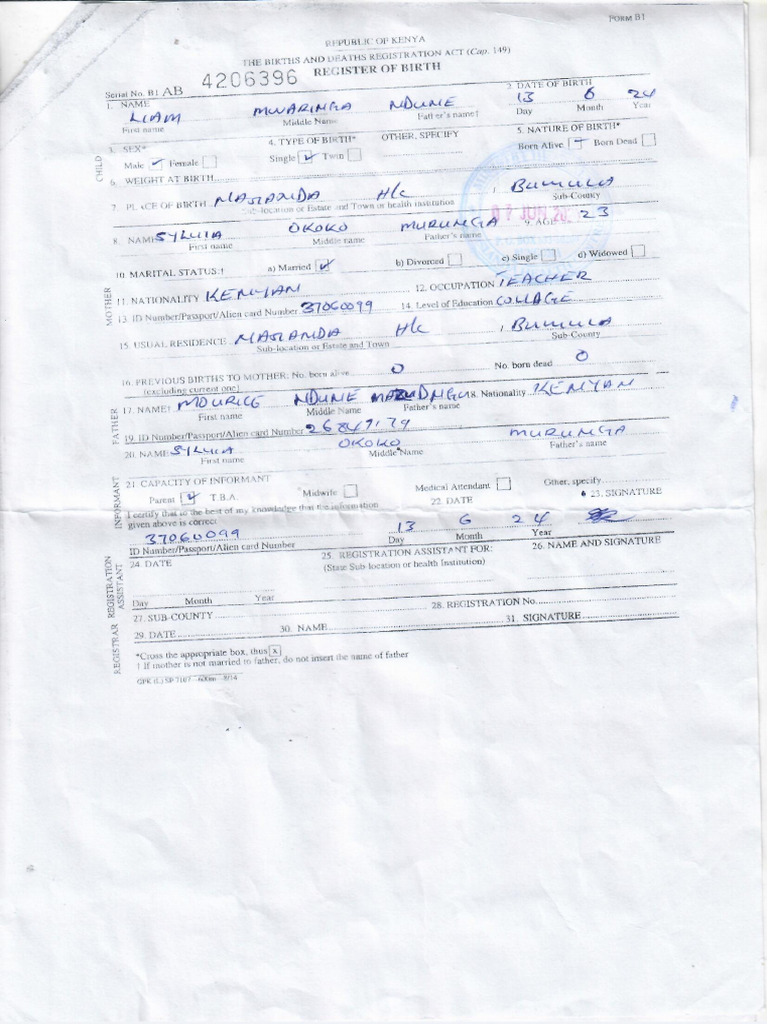 FORM B1
REPUBLIC OF KENYA
THE BIRTHS AND DEATHS REGISTRATION ACT (Cap. 149)
REGISTER OF BIRTH
Serial No. B1 AB 4206396
CHILD
1. NAME LIAM MWARINGA NDUNE
First name Middle Name Father's name†
2. DATE OF BIRTH
13 6 24
Day Month Year
3. SEX*
Male ✓ Female
4. TYPE OF BIRTH*
Single ✓ Twin
OTHER, SPECIFY
5. NATURE OF BIRTH*
Born Alive Born Dead
6. WEIGHT AT BIRTH
7. PLACE OF BIRTH H/c, BUMULA
Sub-location or Estate and Town or health institution Sub-County
07 JUN
MOTHER
8. NAME SYLVIA OKOKO MURUNGA 9. AGE 23
First name Middle name Father's name
10. MARITAL STATUS:† a) Married ✓ b) Divorced c) Single d) Widowed
11. NATIONALITY KENYAN 12. OCCUPATION TEACHER
13. ID Number/Passport/Alien card Number 37060099 14. Level of Education COLLAGE
15. USUAL RESIDENCE H/c, BUMULA
Sub-location or Estate and Town Sub-County
16. PREVIOUS BIRTHS TO MOTHER: No. born alive 0 No. born dead 0
(excluding current one)
FATHER
17. NAME† MOURICE NDUNE 18. Nationality KENYAN
First name Middle Name Father's name
19. ID Number/Passport/Alien card Number 26847179
INFORMANT
20. NAME SYLVIA OKOKO MURUNGA
First name Middle Name Father's name
21. CAPACITY OF INFORMANT
Parent ✓ T.B.A. Midwife Medical Attendant Other, specify
I certify that to the best of my knowledge that the information
given above is correct
22. DATE 23. SIGNATURE
37060099 13 6 24
ID Number/Passport/Alien card Number Day Month Year
REGISTRATION ASSISTANT
24. DATE
25. REGISTRATION ASSISTANT FOR:
(State Sub-location or health Institution)
26. NAME AND SIGNATURE
Day Month Year
REGISTRAR
27. SUB-COUNTY 28. REGISTRATION No.
29. DATE 30. NAME 31. SIGNATURE
*Cross the appropriate box, thus x
† If mother is not married to father, do not insert the name of father
GPK (L) SP 7107 8/14